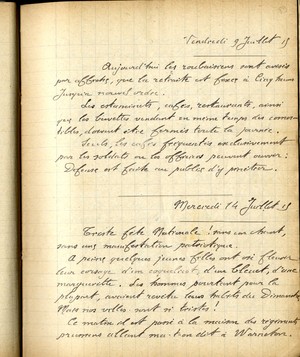 Vendredi 9 Juillet 15
Aujourd'hui les roubaisiens sont avisés
par affiches, que la retraite est fixée à cinq heures
jusqu'à nouvel ordre.
Les estaminets, cafés, restaurants, ainsi
que les buvettes vendant en même temps des comes-
tibles, doivent être fermés toute la journée.
Seuls, les cafés fréquentés exclusivement
par les soldats ou les officiers peuvent ouvrir;
Défense est faite au public d'y pénétrer.
Mercredi 14 Juillet 15
Triste fête Nationale! sans un chant,
sans une manifestation patriotique.
A peine quelques jeunes filles ont osé fleurir
leur corsage d'un coquelicot, d'un bleuet, d'une
marguerite. Les hommes pourtant pour la
plupart, avaient revêtu leurs habits du Dimanche
Mais nos villes sont si tristes!
Ce matin il est passé à la maison des régiments
prussiens allant m'a-t-on dit à Warneton.